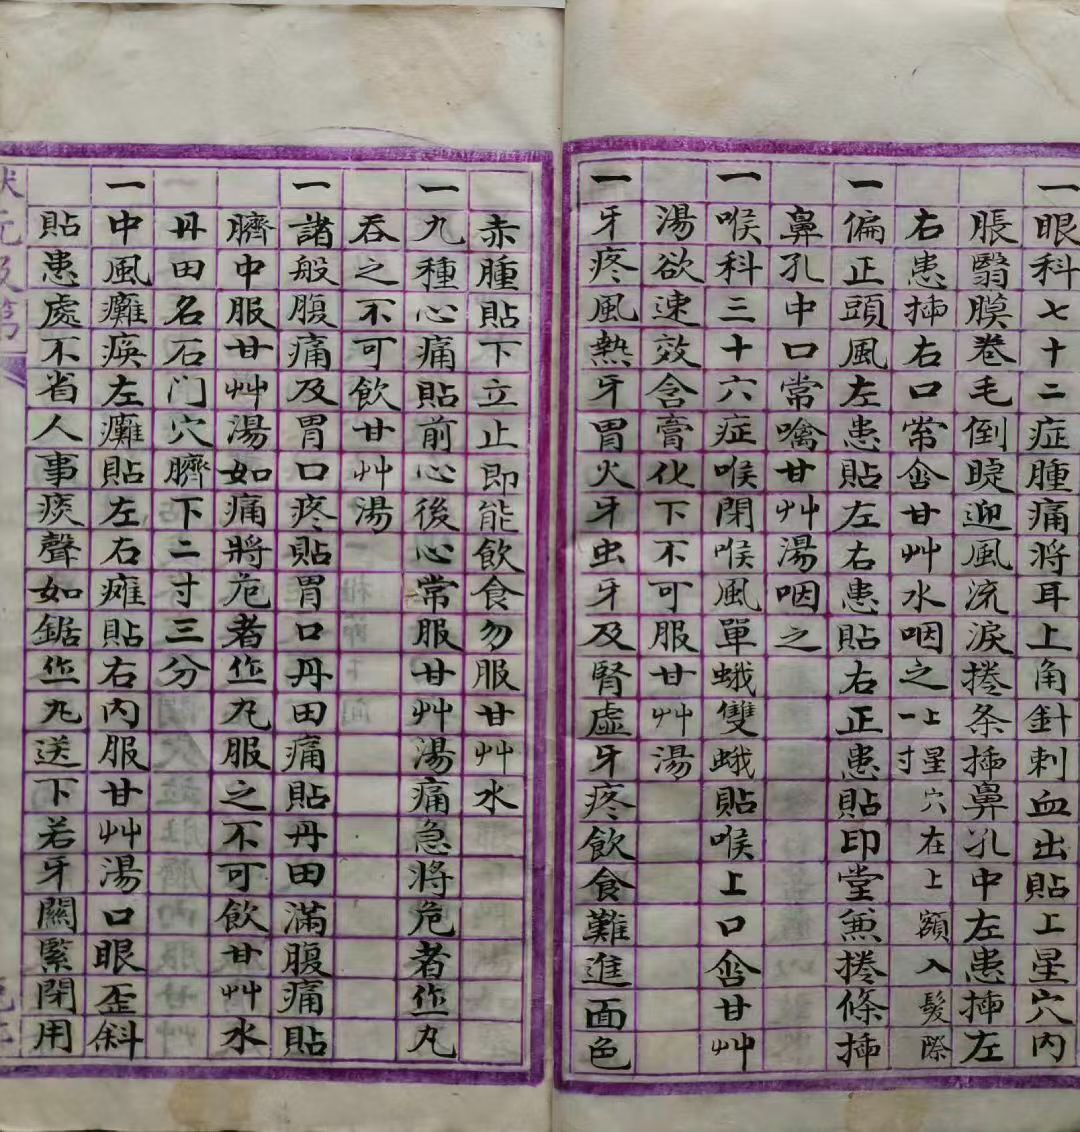 一眼科七十二症腫痛將耳上角針刺血出貼上星穴内
脹翳膜卷毛倒睫迎風流淚捲条揷鼻孔中左患揷左
右患揷右口常含甘艸水咽之上星穴在上額入髮際一寸
一偏正頭風左患貼左右患貼右正患貼印堂兼捲條揷
鼻孔中口常噙甘艸湯咽之
一喉科三十六症喉閉喉風單蛾雙蛾貼喉上口含甘艸
湯欲速效含膏化下不可服甘艸湯
一牙疼風熱牙胃火牙虫牙及腎虛牙疼飲食難進面色
赤腫貼下立止即能飲食勿服甘艸水
一九種心痛貼前心後心常服甘艸湯痛急將危者作丸
吞之不可飲甘艸湯
一諸般腹痛及胃口疼貼胃口丹田痛貼丹田滿腹痛貼
臍中服甘艸湯如痛將危者作丸服之不可飲甘艸水
丹田名石门穴臍下二寸三分
一中風癱瘓左癱貼左右瘫貼右内服甘艸湯口眼歪斜
貼患處不省人事痰聲如鋸作丸送下若牙關緊閉用